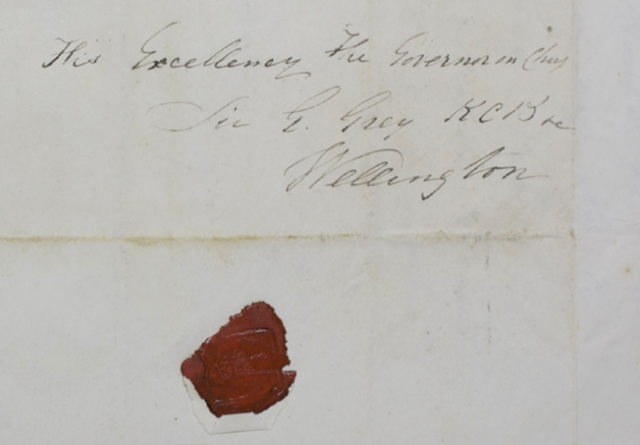 His Excellency The Governor in Chief
Sir G. Grey KCB &c
Wellington